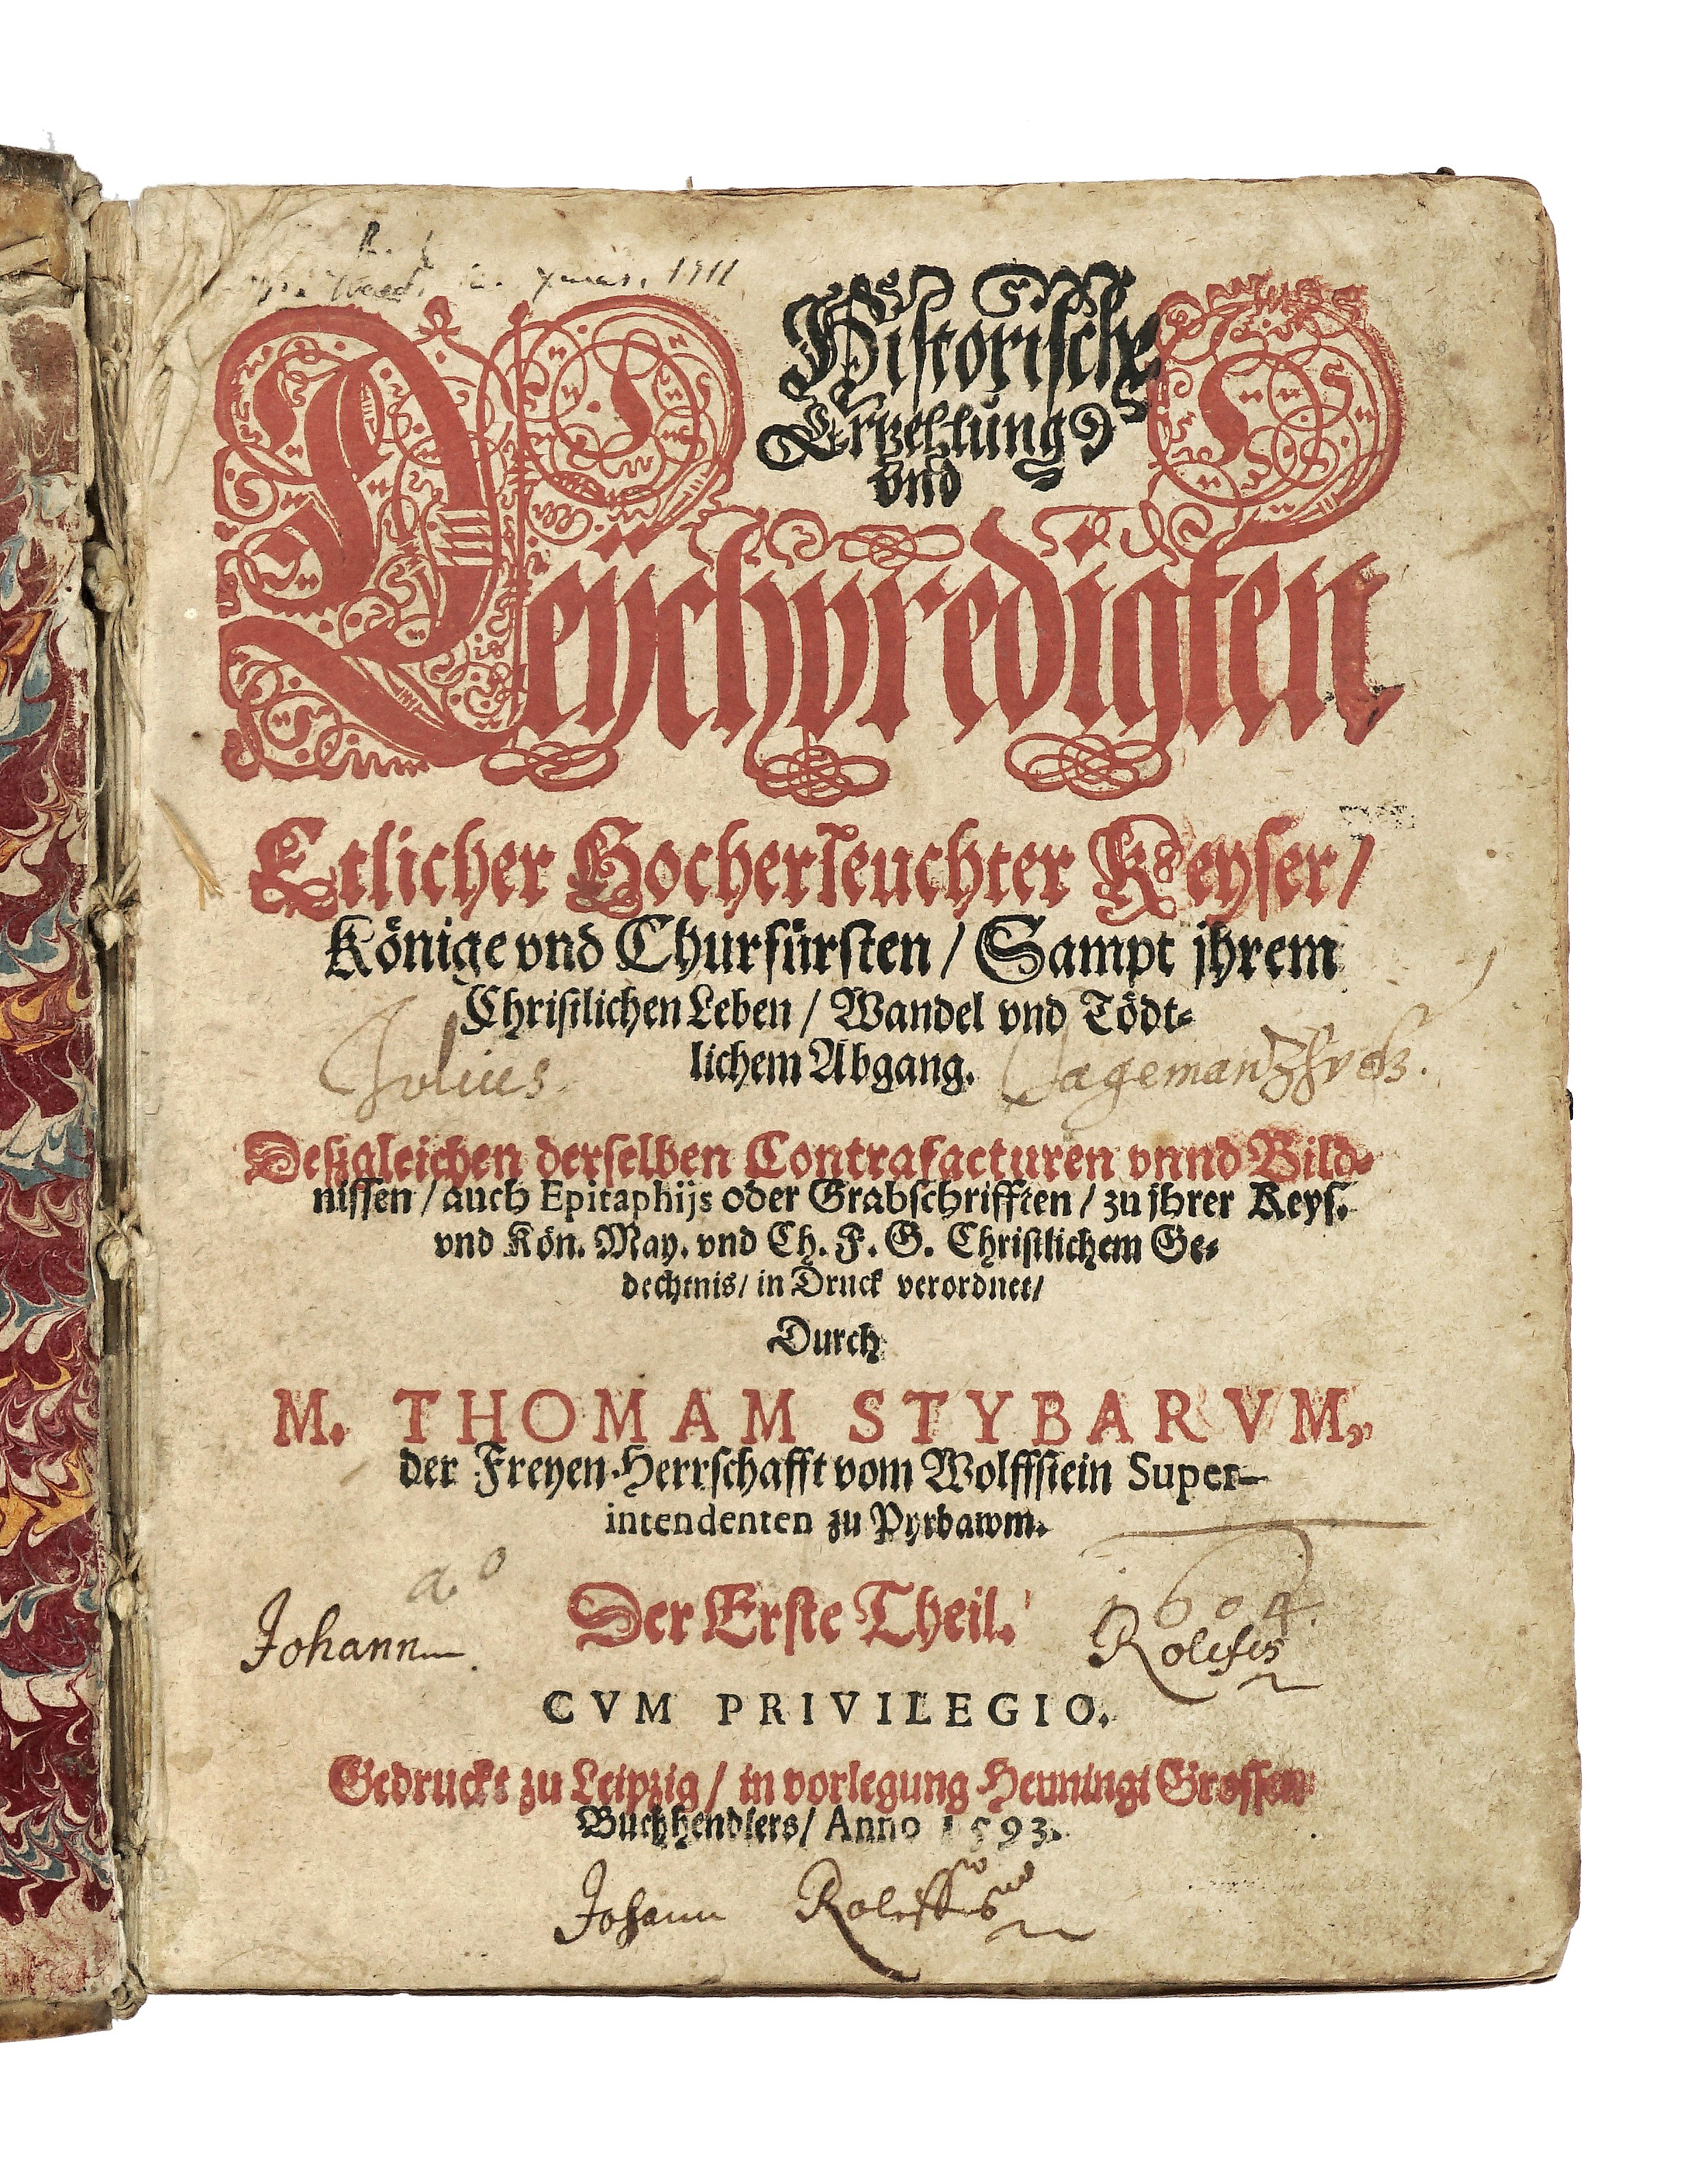 Xmas. 1911
Historische
Erzehlung
vnd
Leychpredigten
Etlicher Hocherleuchter Keyser/
Könige vnd Churfürsten/ Sampt jhrem
Christlichen Leben/ Wandel vnd Tödt⸗
lichem Abgang.
Julius Jagemann
Deßgleichen derselben Contrafacturen vnnd Bild⸗
nissen/ auch Epitaphijs oder Grabschrifften/ zu jhrer Keys.
vnd Kön. May. vnd Ch. F. G. Christlichem Ge⸗
dechtnis/ in Druck verordnet/
Durch
M. THOMAM STYBARVM,
der Freyen Herrschafft vom Wolffstein Super-
intendenten zu Pyrbawm.
ao 1604.
Der Erste Theil.
Johann
CVM PRIVILEGIO.
Gedruckt zu Leipzig/ in vorlegung Henningi Grossen
Buchhendlers/ Anno 1593.
Johann